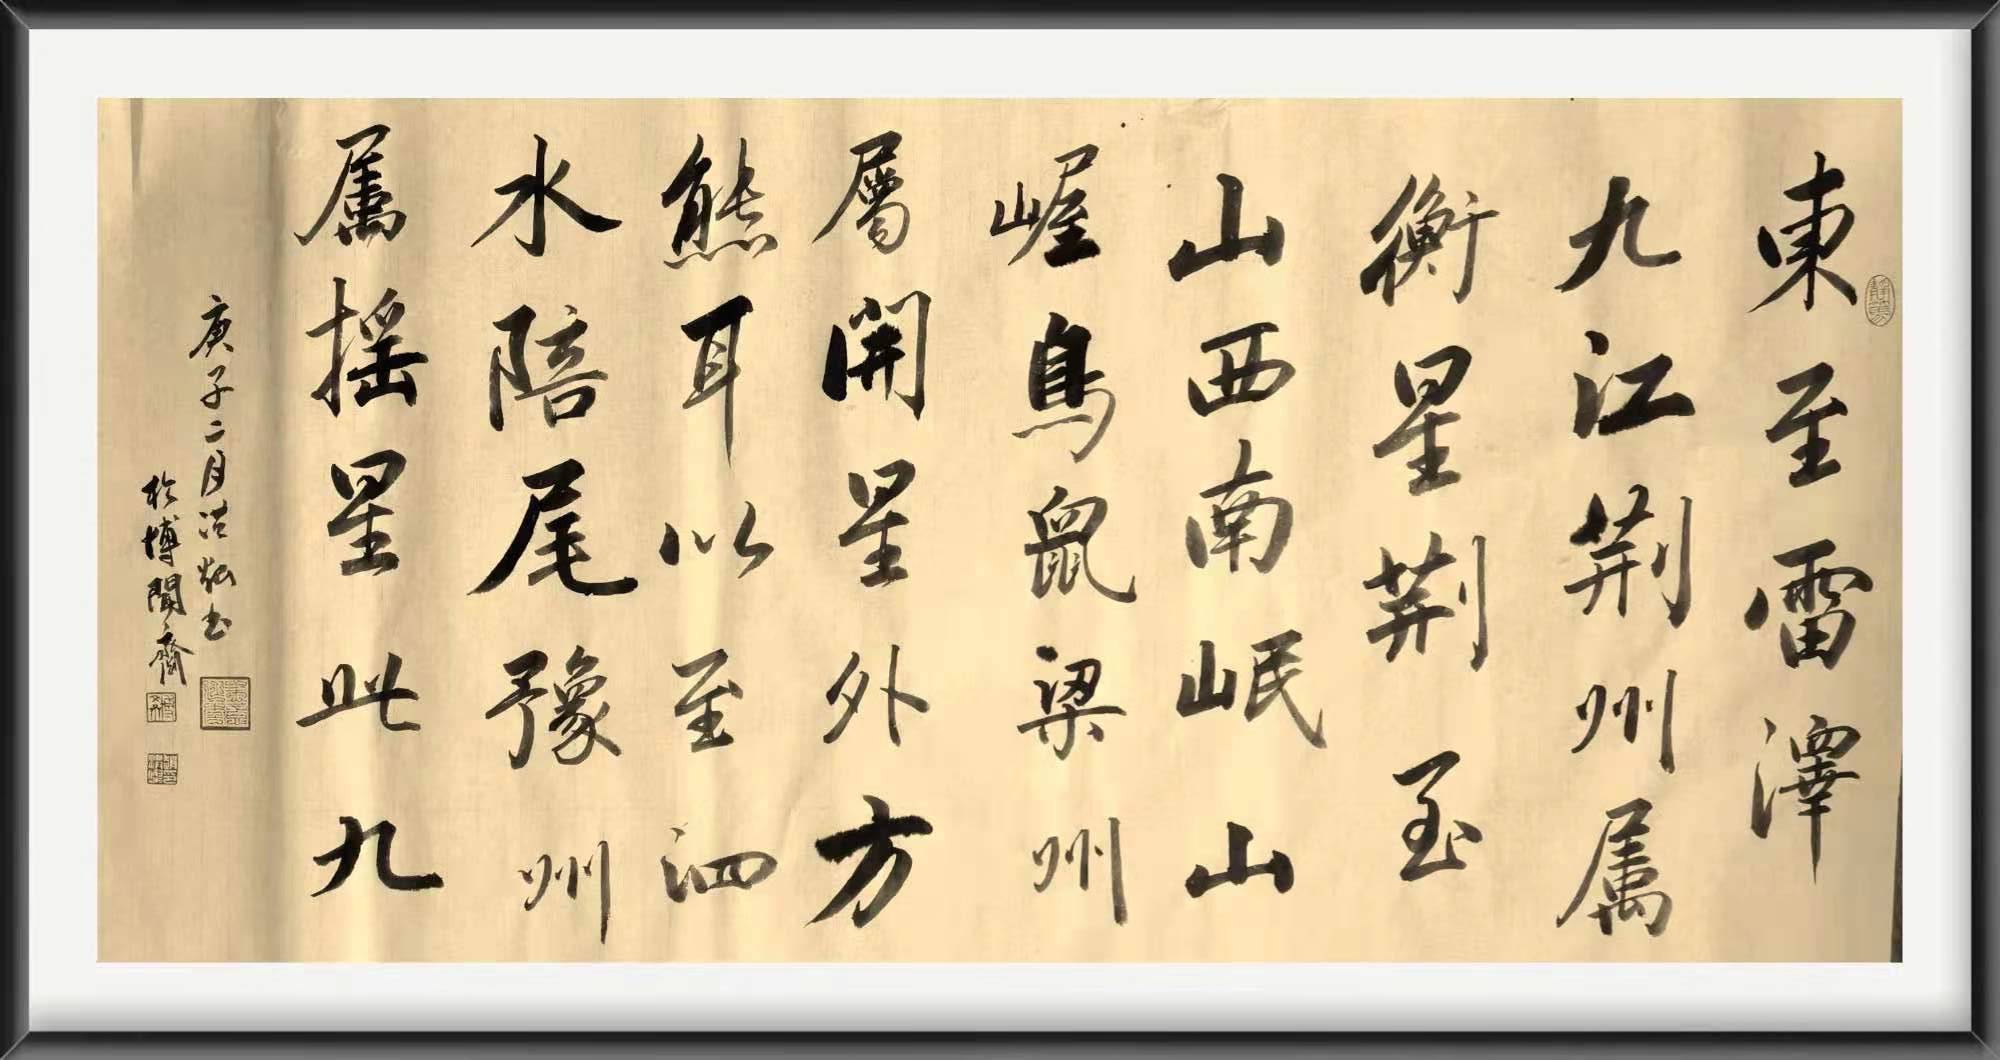 東至雷澤
九江荆州属
衡星荆至
山西南岷山
崌鳥鼠梁州
屬開星外方
熊耳以至泗
水陪尾豫州
属摇星此九
庚子二月浩書
於博聞齋